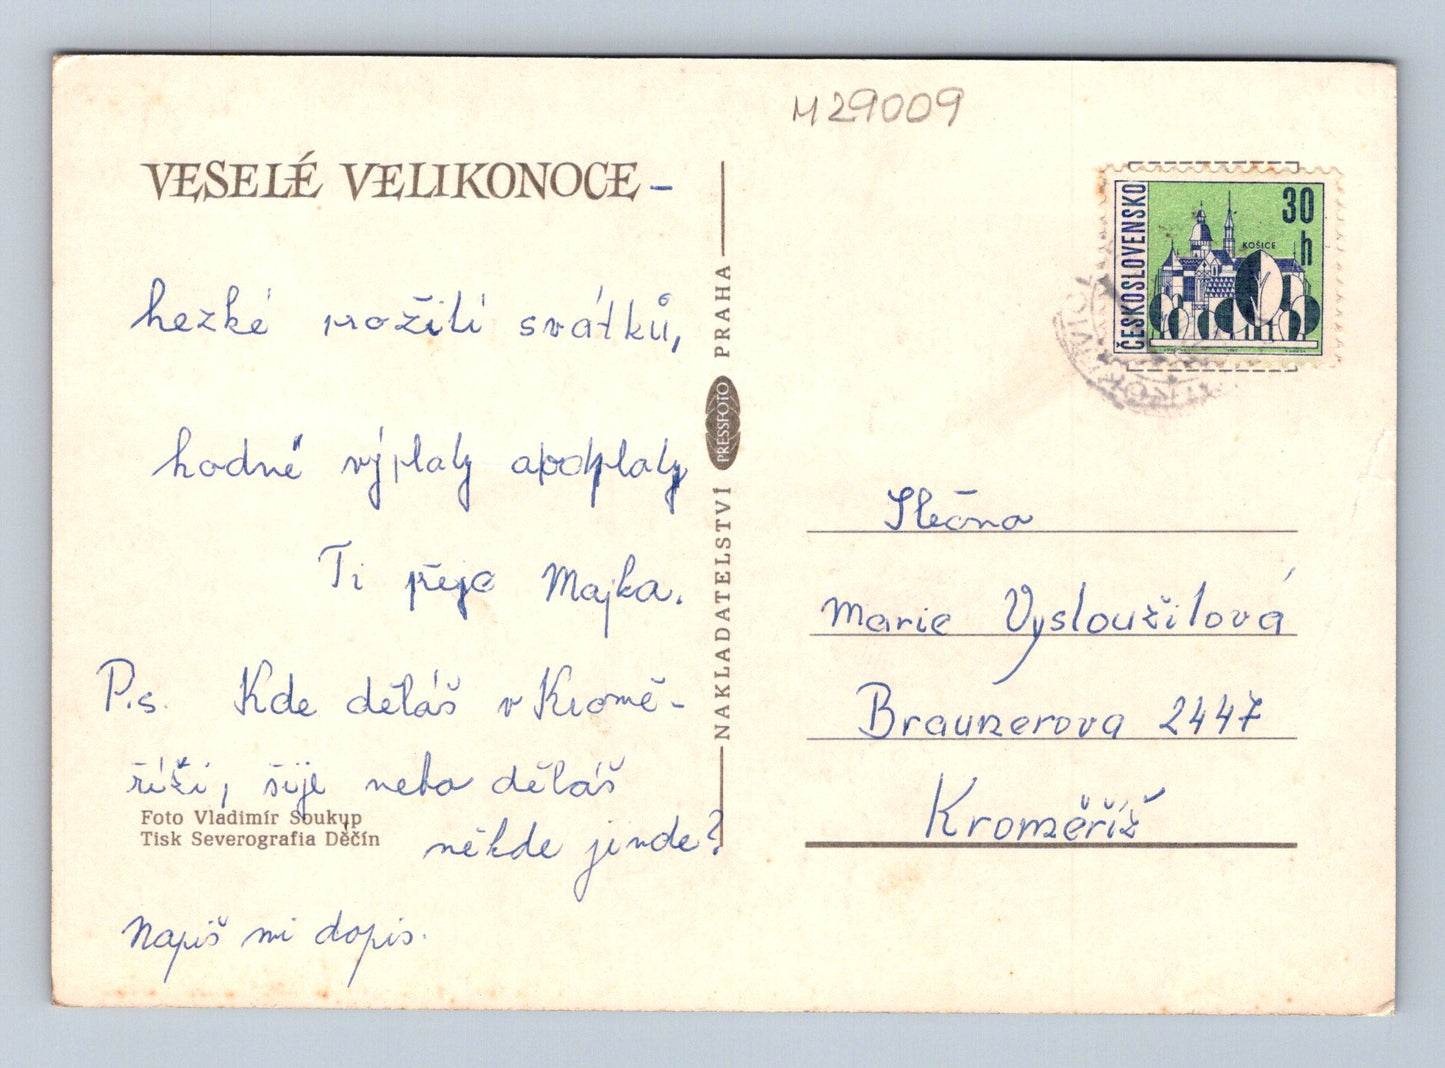 M29009
VESELÉ VELIKONOCE –
hezké prožití svátků,
hodně výplaty
Ti přeje Majka.
P.s. Kde děláš v Kromě-
říži, šije nebo děláš
někde jinde?
Napiš mi dopis.
Foto Vladimír Soukup
Tisk Severografia Děčín
NAKLADATELSTVÍ PRESSFOTO PRAHA
ČESKOSLOVENSKO
30
h
KOŠICE
Slečna
Marie Vysloužilová
Braunerova 2447
Kroměříž